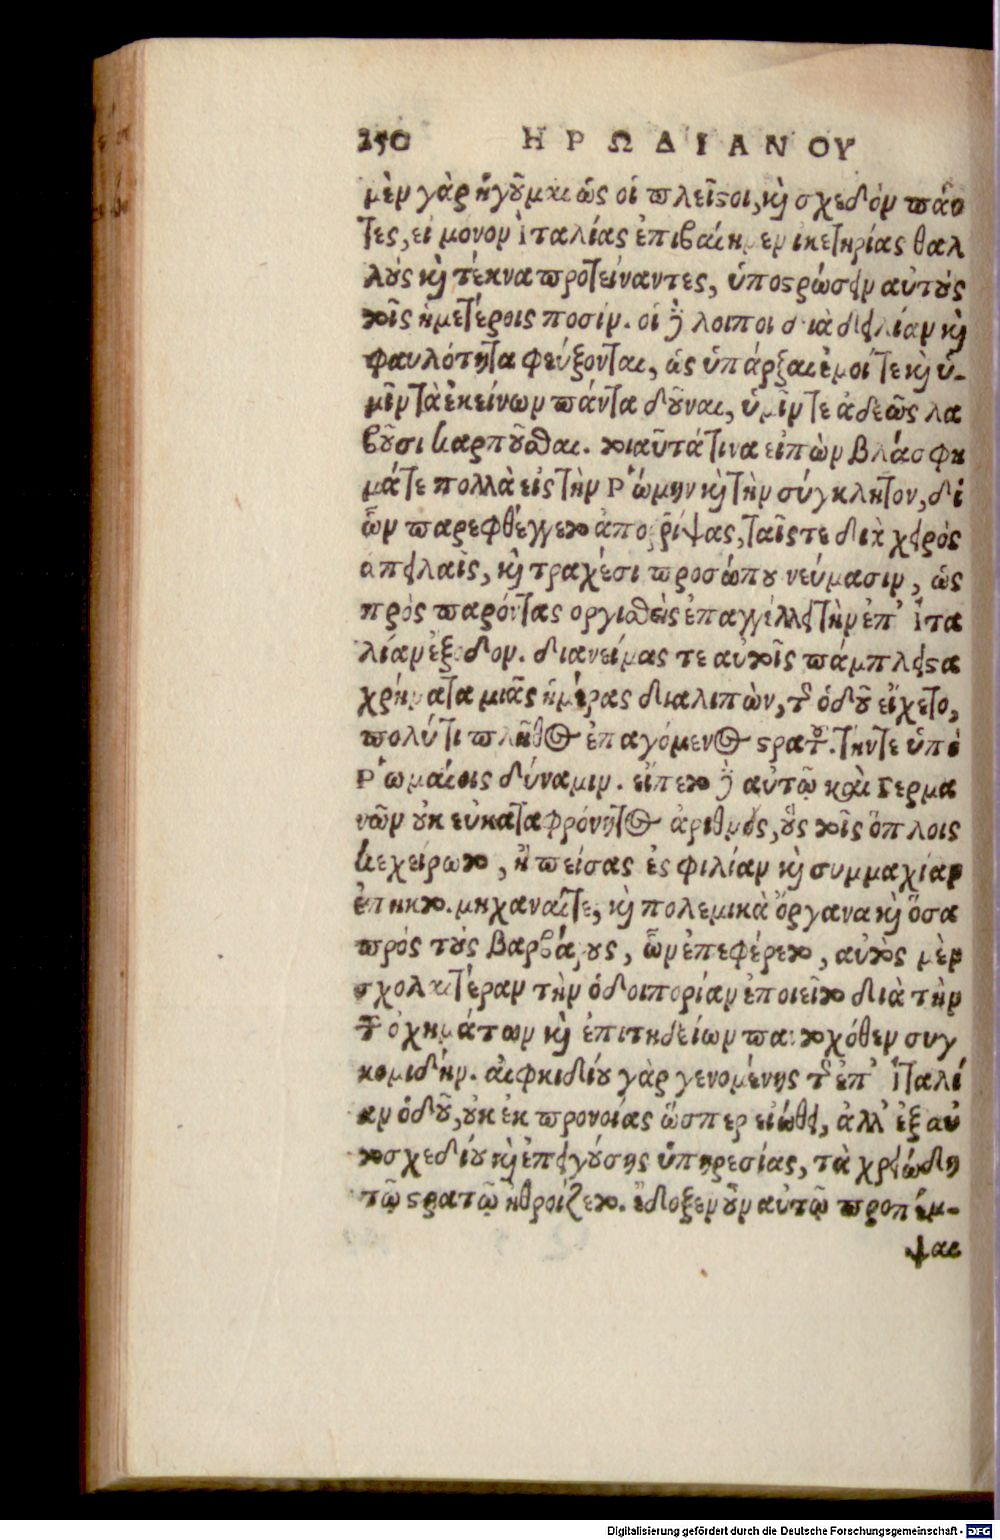 250 ΗΡΩΔΙΑΝΟΥ
μὲν γὰρ ἡγοῦμαι ὡς οἱ πλεῖϛοι, καὶ σχεδὸν πάν
τες, εἰ μόνον Ἰταλίας ἐπιβαίημεν ἱκετηρίας θαλ
λοὺς καὶ τέκνα προτείναντες, ὑποϛρώσειν αὑτοὺς
τοῖς ἡμετέροις ποσίν. οἱ δὲ λοιποὶ διὰ δειλίαν καὶ
φαυλότητα φεύξονται, ὡς ὑπάρξαι ἐμοί τε καὶ ὑ-
μῖν τὰ ἐκείνων πάντα δοῦναι, ὑμῖν τε ἀδεῶς λα
βοῦσι καρποῦσθαι. τοιαῦτά τινα εἰπὼν βλάσφη
μά τε πολλὰ εἰς τὴν Ῥώμην καὶ τὴν σύγκλητον, δι
ὧν παρεφθέγγετο ἀπορρίψας, ταῖς τε διὰ χειρὸς
ἀπειλαῖς, καὶ τραχέσι προσώπου νεύμασιν, ὡς
πρὸς παρόντας ὀργισθεὶς ἐπαγγέλλει τὴν ἐπ' Ἰτα
λίαν ἔξοδον. διανείμας τε αὐτοῖς πάμπλειϛα
χρήματα μιᾶς ἡμέρας διαλιπὼν, τῆς ὁδοῦ εἴχετο,
πολύ τι πλῆθος ἐπαγόμενος ϛρατοῦ. τήν τε ὑπὸ
Ῥωμαίοις δύναμιν. εἵπετο δὲ αὐτῷ καὶ Γερμα
νῶν οὐκ εὐκαταφρόνητος ἀριθμὸς, οὓς τοῖς ὅπλοις
κεχείρωτο, ἢ πείσας ἐς φιλίαν καὶ συμμαχίαν
ἐπῆκτο. μηχαναί τε, καὶ πολεμικὰ ὄργανα καὶ ὅσα
πρὸς τοὺς βαρβάρους, ὧν ἐπεφέρετο, αὐτὸς μὲν
σχολαιτέραν τὴν ὁδοιπορίαν ἐποιεῖτο διὰ τὴν
τῶν ὀχημάτων καὶ ἐπιτηδείων πανταχόθεν συγ
κομιδήν. αἰφνιδίου γὰρ γενομένης τῆς ἐπ' Ἰταλί
αν ὁδοῦ, οὐκ ἐκ προνοίας ὥσπερ εἰώθει, ἀλλ' ἐξ αὐ
τοσχεδίου καὶ ἐπειγούσης ὑπηρεσίας, τὰ χρειώδη
τῷ ϛρατῷ ἠθροίζετο. ἔδοξεν οὖν αὐτῷ προπέμ-
ψαι
Digitalisierung gefördert durch die Deutsche Forschungsgemeinschaft - DFG